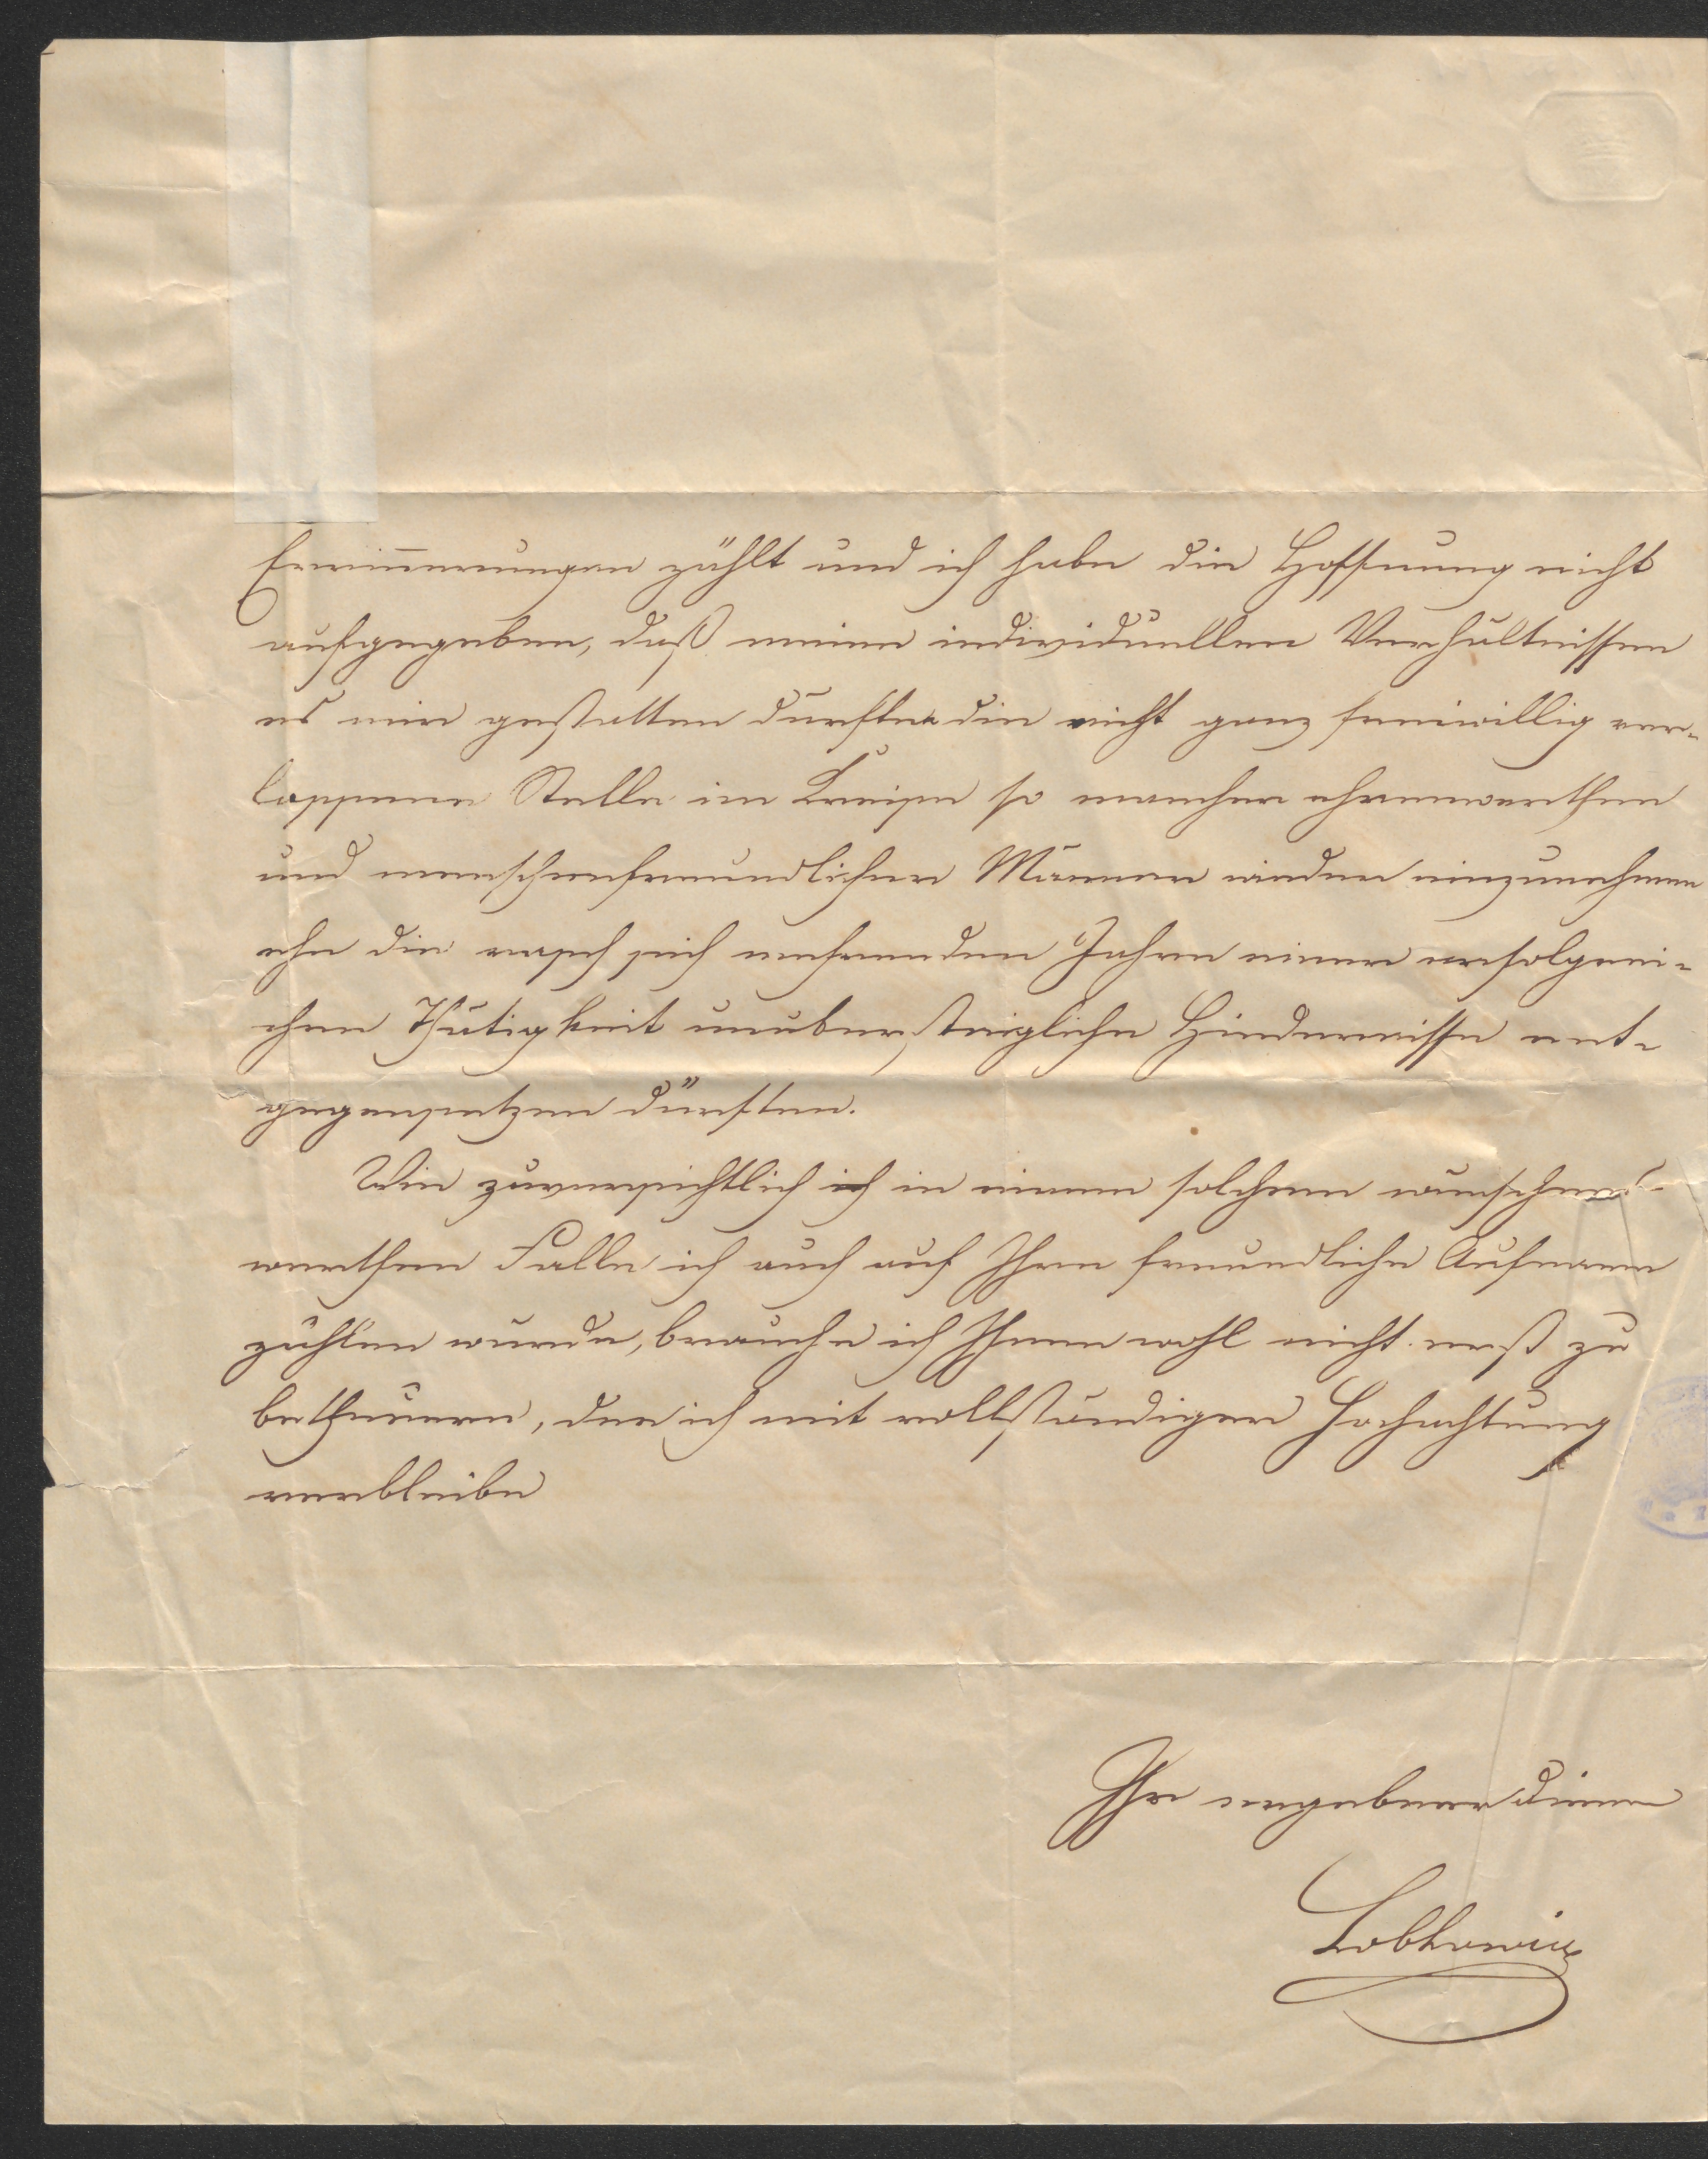 Erinnerungen zählt und ich habe die Hoffnung nicht
aufgegeben, daß meine individuellen Verhältnissen
es mir gestatten durften die nicht ganz freiwillig ver-
lassene Stelle im Kreise so mancher ehrenwerthen
und menschenfreundlicher Männer wieder einzunehmen
ehe die rasch sich mehrenden Jahre einer erfolgrei-
chen Thätigkeit unübersteigliche Hindernisse ent-
gegensetzen dürften.
Wie zuversichtlich in einem solchen wünschens-
werthen Falle ich auch auf Ihre freundliche
zählen würde, brauche ich Ihnen wohl nicht erst zu
betheuern, der ich mit vollständiger Hochachtung
verbleibe
Ihr ergebener Diener
Lobkowicz